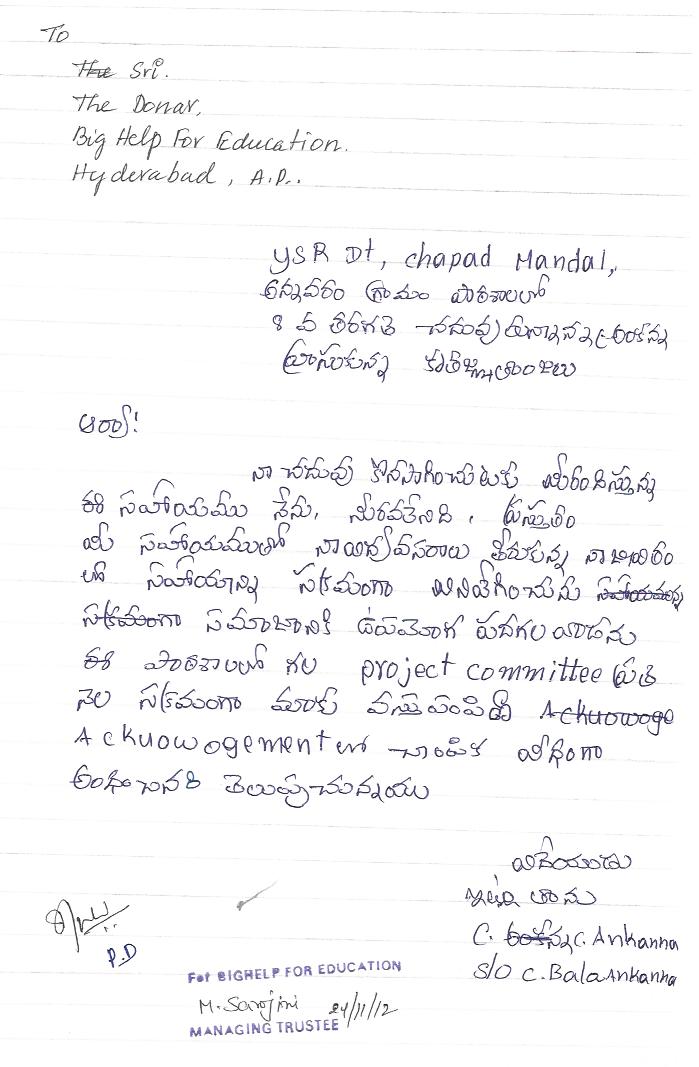 To
The Sri.
The Donar,
Big Help For Education.
Hyderabad, A.P..
YSR Dt, chapad Mandal,
అన్నవరం గ్రామం పాఠశాలలో
8 వ తరగతి చదువుతున్న C అంకన్న
వ్రాసుకున్న కృతజ్ఞతాంజలు
ఆర్యా!
నా చదువు కొనసాగించుటకు మీరందిస్తున్న
ఈ సహాయము నేను, మరవలేనిది. ప్రస్తుతం
మీ సహాయముతో నా విద్యావసరాలు తీరుకున్న నా
లో సహాయాన్ని సక్రమంగా వినియోగించును
సక్రమంగా సమాజానికి ఉపయోగ పడగల వాడను
ఈ పాఠశాలలో గల project committee ప్రతి
నెల సక్రమంగా మాకు వస్తు పంపిణీ Ackuowoge
Ackuowogement లో చూపిక విధంగా
అందించినది తెలుపుచున్నాము
విధేయుడు
ఇట్లు తాము
C. అంకన్న C. Ankanna
S/O C. Bala Ankanna
P.D
For BIGHELP FOR EDUCATION
M. Sarojini 24/11/12
MANAGING TRUSTEE